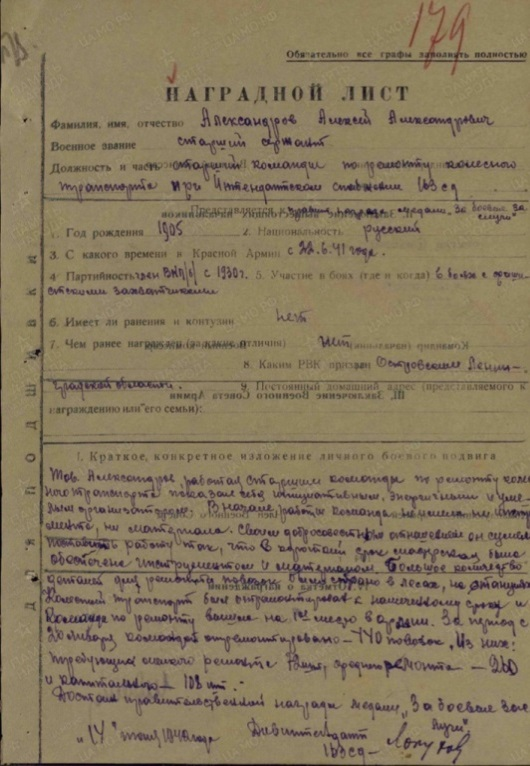 179
Обязательно все графы заполнять полностью
НАГРАДНОЙ ЛИСТ
Фамилия, имя, отчество Александров Алексей Александрович
Военное звание старший сержант
Должность и часть старший команды по ремонту колесного
транспорта при Интендантском снабжении 163 сд
Представляется к правит. награде медали „За боевые за
слуги"
1. Год рождения 1905 2. Национальность русский
3. С какого времени в Красной Армии с 22.6.41 года.
4. Партийность член ВКП(б) с 1930 г. 5. Участие в боях (где и когда) в боях с фаши-
стскими захватчиками
6. Имеет ли ранения и контузии нет
7. Чем ранее награжден (за какие отличия) нет
8. Каким РВК призван Островским Ленин-
градской области.
9. Постоянный домашний адрес (представляемого к
награждению или его семьи):
ПОДШИВКИ
I. Краткое, конкретное изложение личного боевого подвига
Тов. Александров, работая старшим команды по ремонту колес
ного транспорта показал себя инициативным, энергичным и уме-
лым организатором. В начале работы команда не имела ни инстру
мента, ни материала. Своим добросовестным отношением он сумел
поставить работу так, что в короткий срок мастерская была
обеспечена инструментом и материалом. Большое количество
деталей для ремонта повозок было собрано в лесах, на станциях
Колесный транспорт был отремонтирован к намеченному сроку и
команда по ремонту вышла на 1ое место в армии. За период с
20 января командой отремонтировано – 440 повозок, из них:
требующих малого ремонта среднего ремонта –
и капитального – 108 шт.
Достоин правительственной награды медали „За боевые зас
луги"
„14" 194 года Дивинтендант
163 сд –